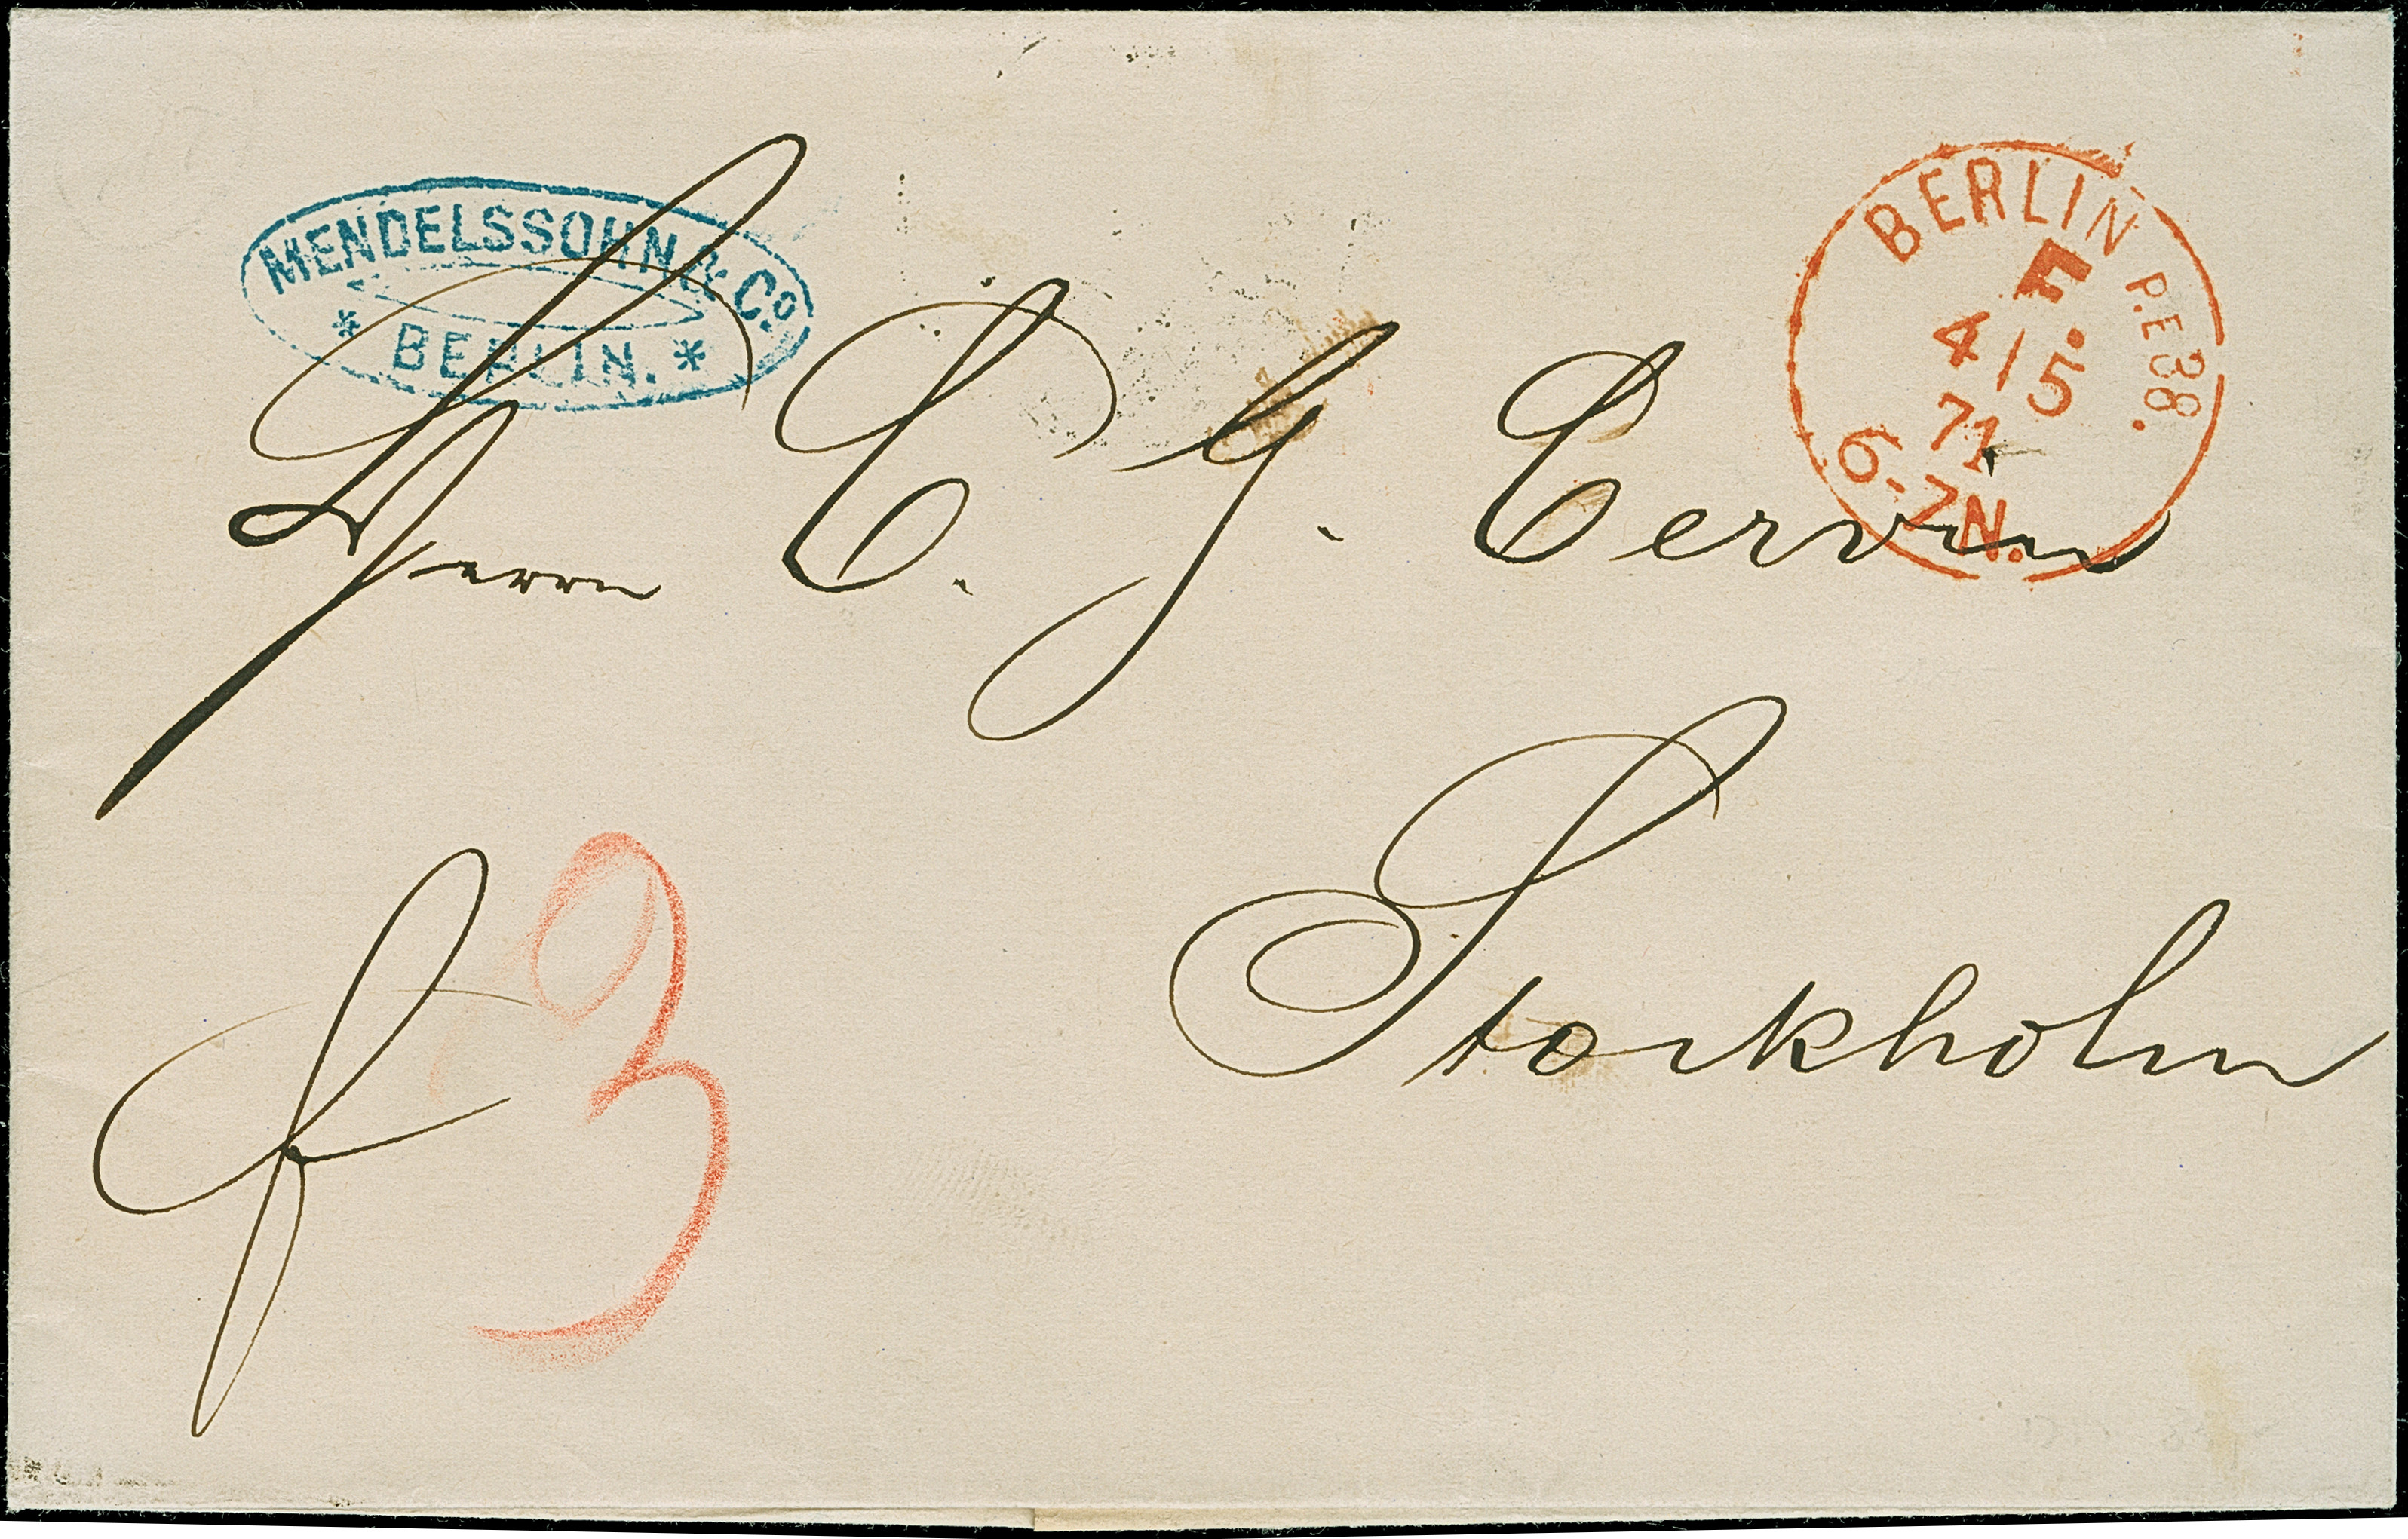 MENDELSSOHN & Co.
* BERLIN. *
BERLIN P.E 38.
F.
4/5
71
6-7N.
Herrn C. G. Cervin
Stockholm
f 3